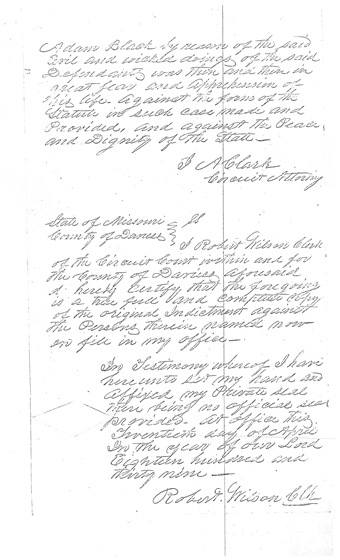 Adam Black by reason of the said
Evil and wicked doings of the said
Defendants was then and there in
great fear and apprehension of
his life against the form of the
Statute in such case made and
Provided, and against the Peace,
and Dignity of the State —
J A Clark
Circuit Attorney
State of Missouri } SS
County of Daviess }
I Robert Wilson Clerk
of the Circuit Court within and for
the County of Daviess aforesaid
do hereby Certify that the foregoing
is a true full and complete copy
of the original Indictment against
the Persons therein named now
on file in my office —
In Testimony whereof I have
hereunto set my hand and
affixed my Private seal
there being no official seal
provided. at office this
Twentieth day of April
In the year of our Lord
Eighteen hundred and
thirty nine —
Robert Wilson Clk